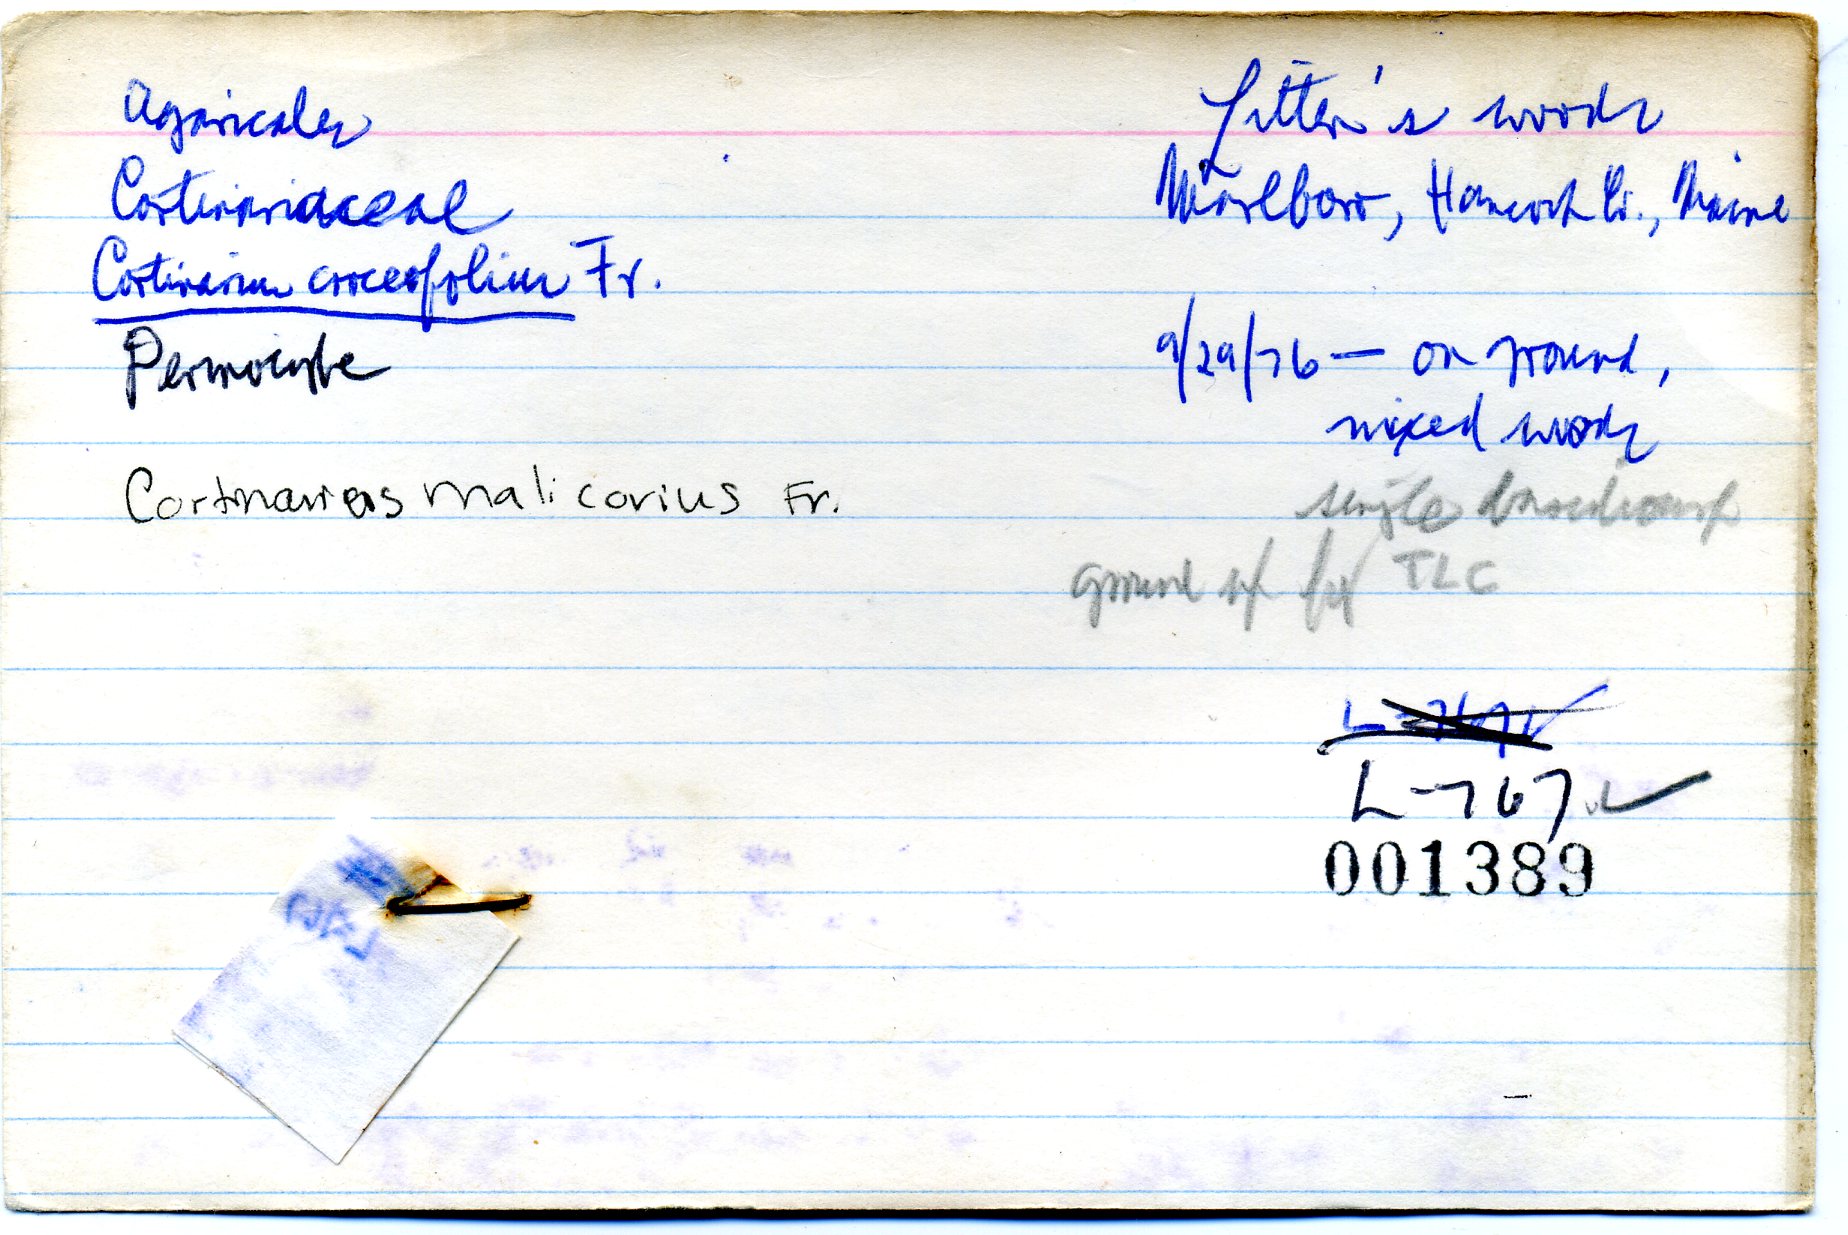 Agaricales
Cortinariaceae
Cortinarius croceofolius Fr.
Dermocybe
Cortinarius malicorius Fr.
woods
Marlboro, Hancock Co., Maine
9/29/76 — on ground,
mixed woods
single
ground up for TLC
L-767
001389
L-767